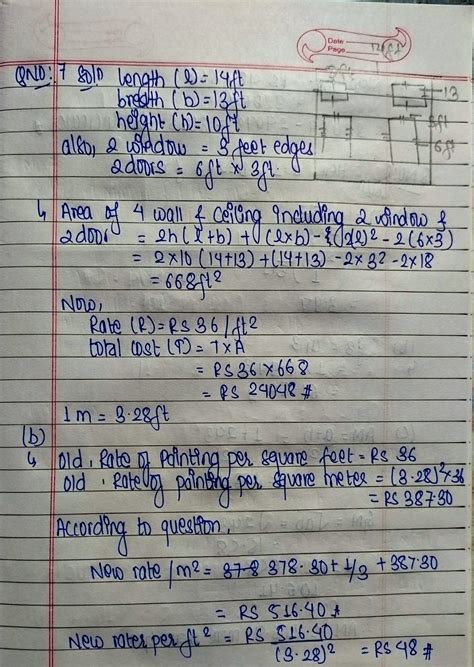 Date
Page
QNO: 7 Solⁿ length (l) = 14ft
breadth (b) = 13ft
height (h) = 10ft
also, 2 window = 3 feet edges
2 doors = 6ft × 3ft.
13
6ft
↳ Area of 4 wall & ceiling including 2 window &
2 door = 2h(l+b) + (l×b) - 2(l)² - 2(6×3)
= 2×10(14+13) + (14+13) - 2×3² - 2×18
= 668ft²
Now,
Rate (R) = RS 36/ft²
total cost (T) = T×A
= RS 36×668
= RS 24048 #
1m = 3.28ft
(b)
↳ Old. Rate of painting per square feet = RS 36
Old. Rate of painting per square meter = (3.28)²×36
= RS 387.30
According to question,
New rate/m² = 378.30 + 1/3 + 387.30
= RS 516.40 #
New rates per ft² = RS 516.40 / (3.28)² = RS 48 #